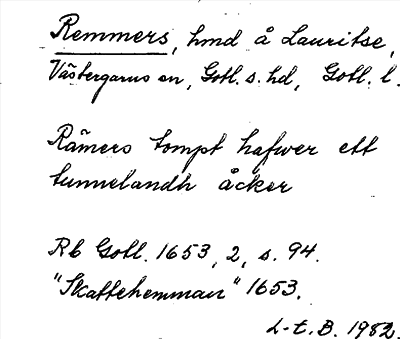 Remmers, hmd å Lauritse,
Västergarns sn, Gotl. s. hd, Gotl. l.
Rämers tompt hafwer ett
tunnelandh åcker
Rb Gotl. 1653, 2, s. 94.
"Skattehemman" 1653.
L-t. B. 1982.